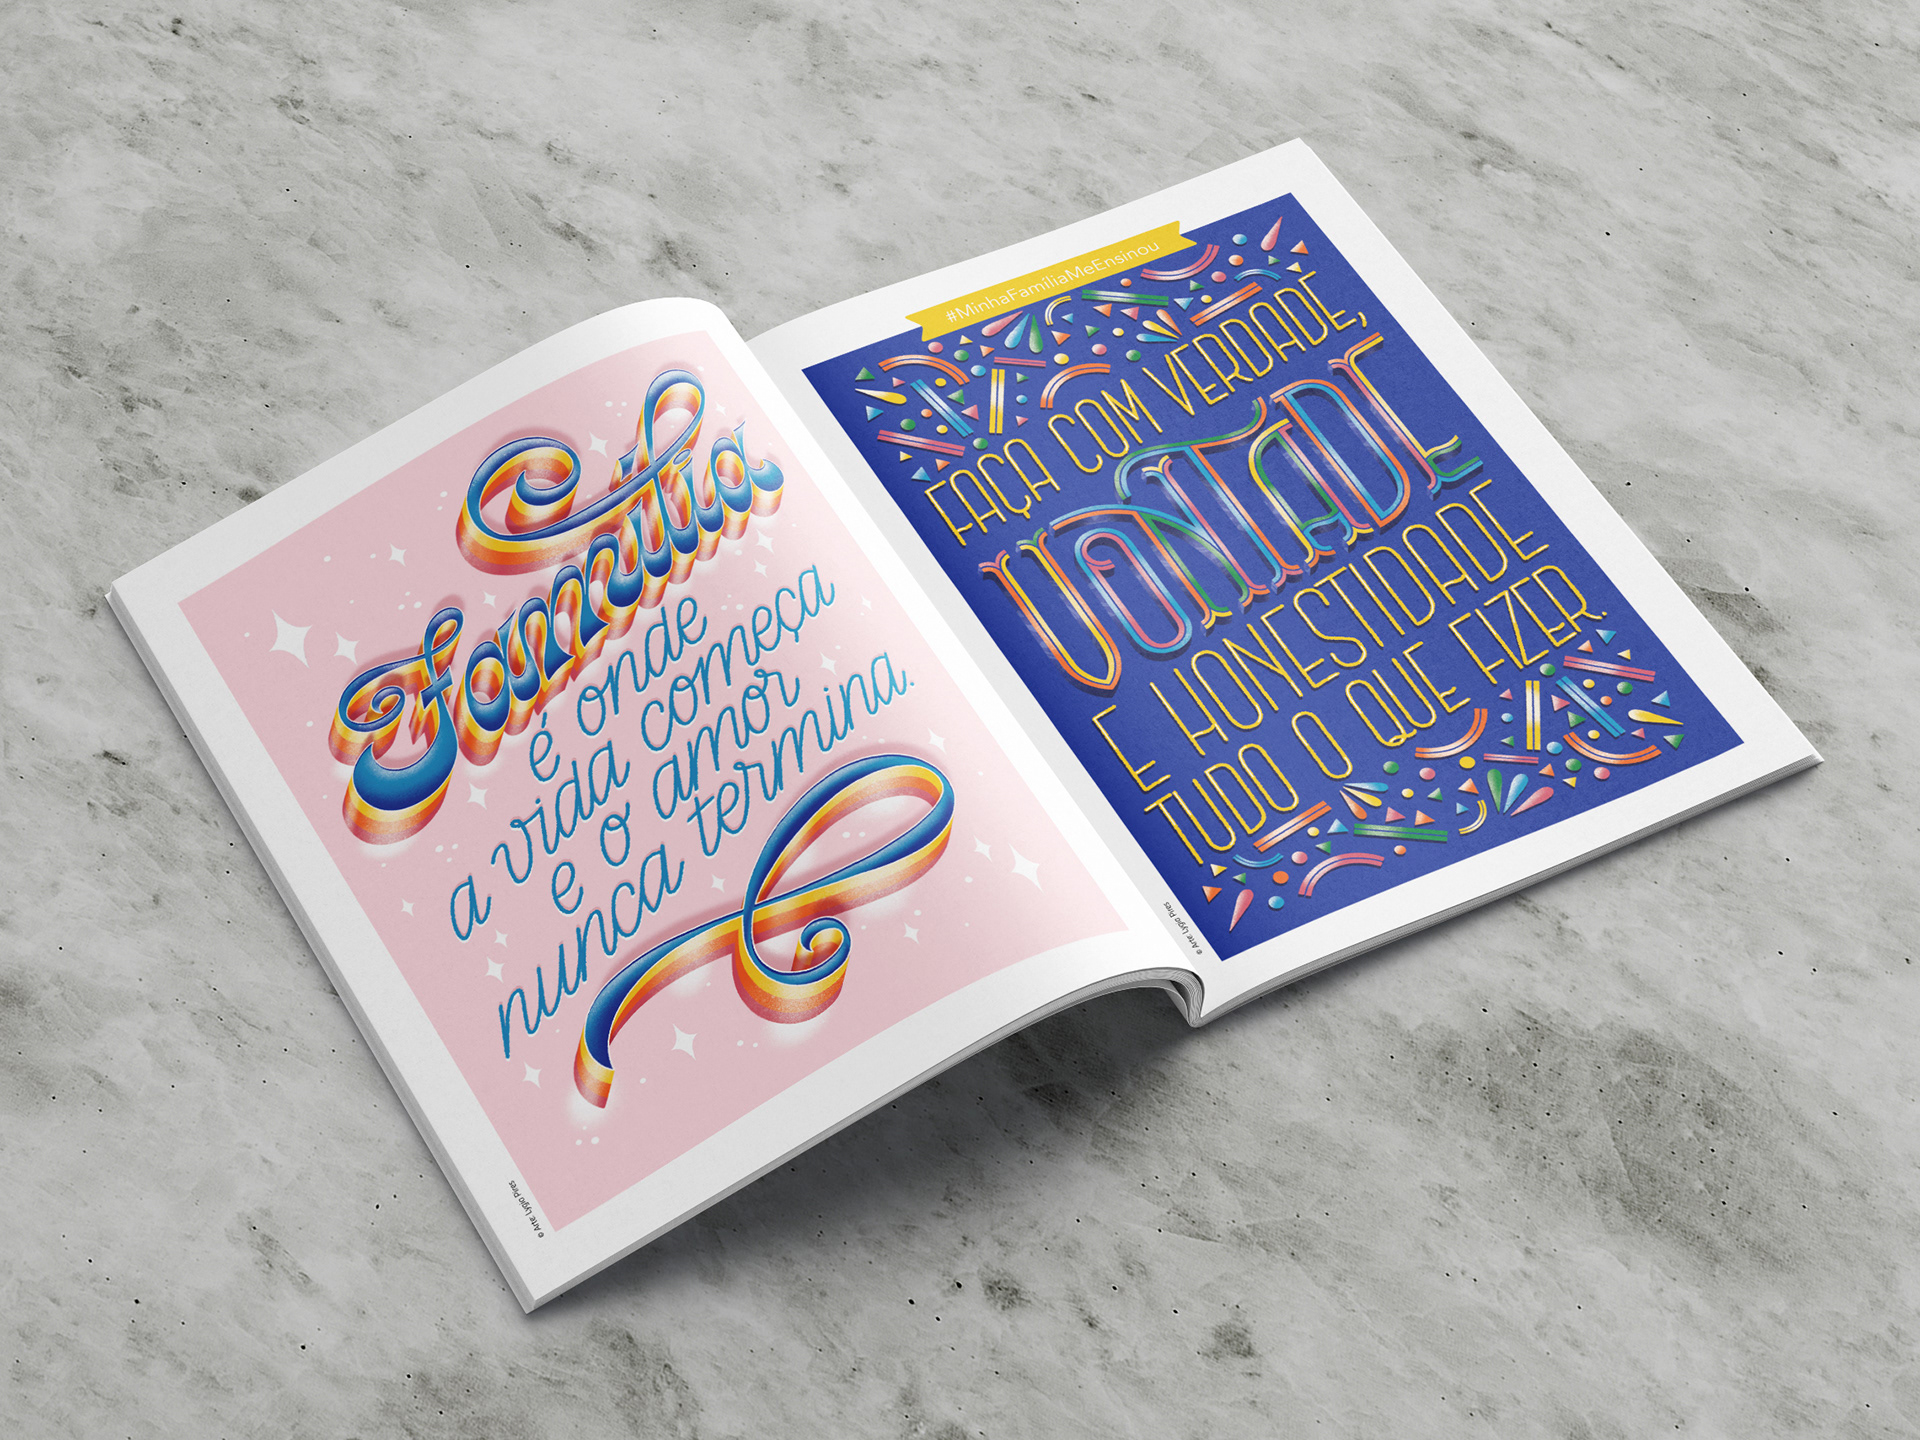 Família
é onde
a vida começa
e o amor
nunca termina.
© Arte: Lygia Pires
#MinhaFamíliaMeEnsinou
FAÇA COM VERDADE,
VONTADE
E HONESTIDADE
TUDO O QUE FIZER.
© Arte: Lygia Pires